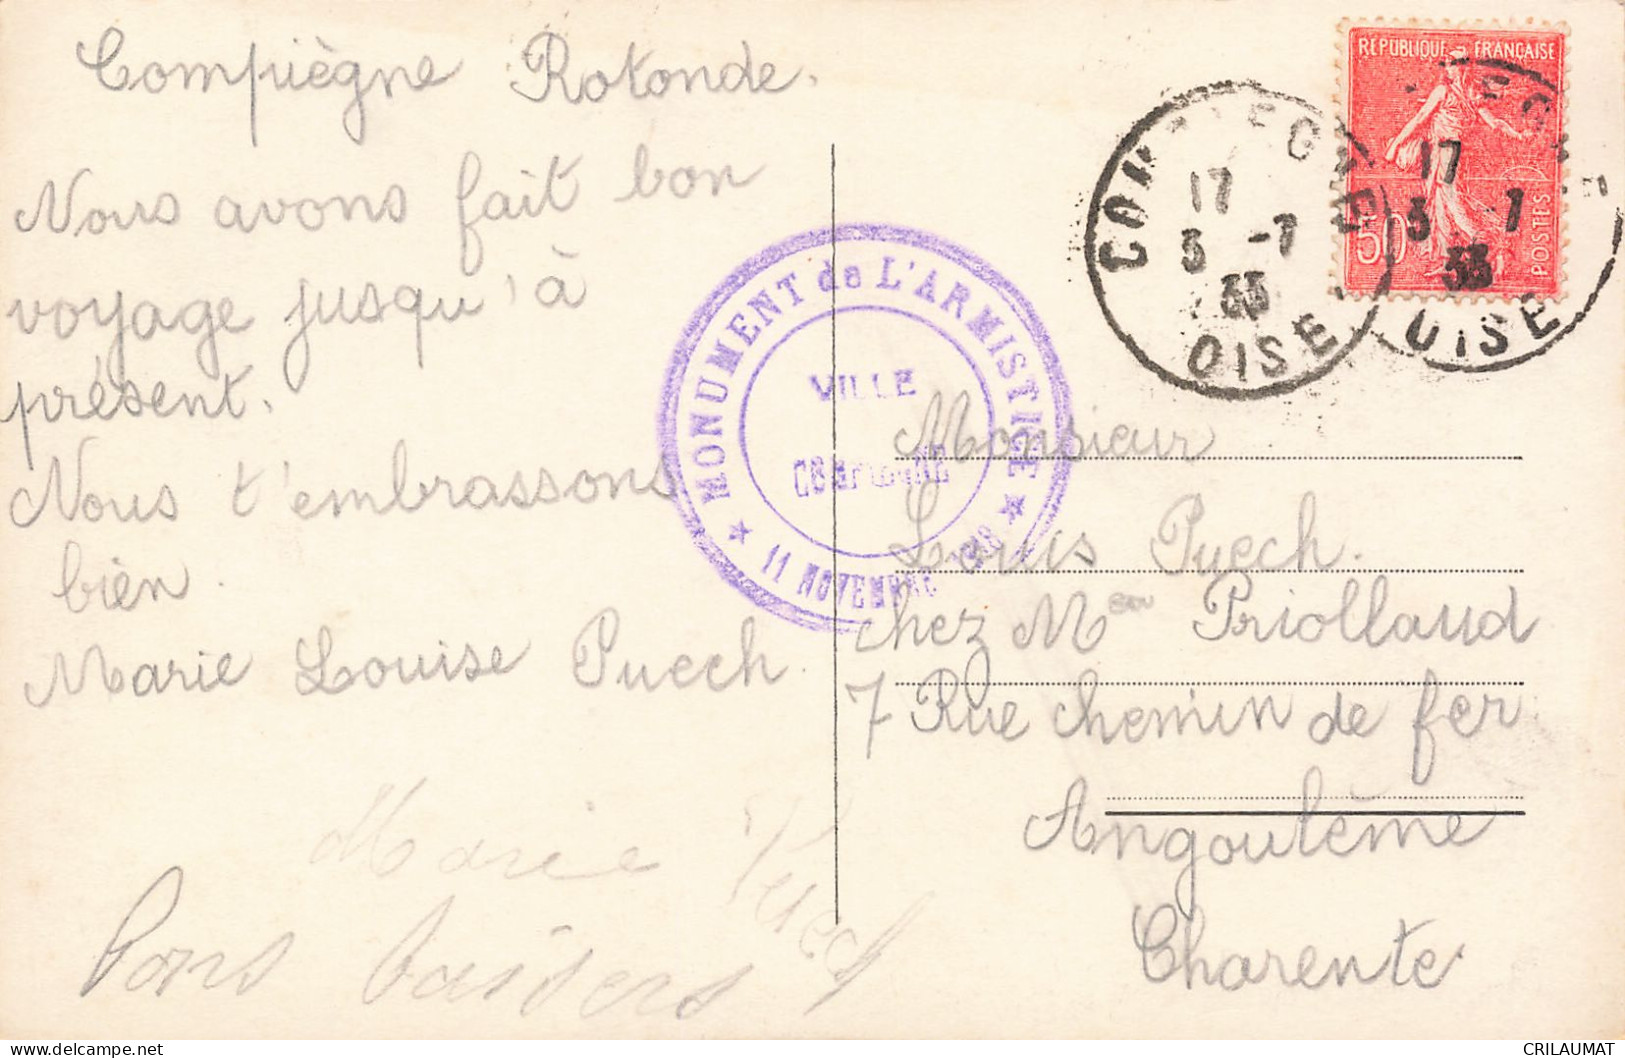 Compiègne Rotonde.
Nous avons fait bon
voyage jusqu'à
présent.
Nous t'embrassons
bien.
Marie Louise Puech.
Marie Puech
Bons baisers
MONUMENT de L'ARMISTICE
VILLE
11 NOVEMBRE
RÉPUBLIQUE FRANÇAISE
50
POSTES
COMPIEGNE
17
3 -7
33
OISE
17
3 -7
33
OISE
Monsieur
Louis Puech.
chez M Priollaud
7 Rue chemin de fer
Angoulême
Charente
CRILAUMAT